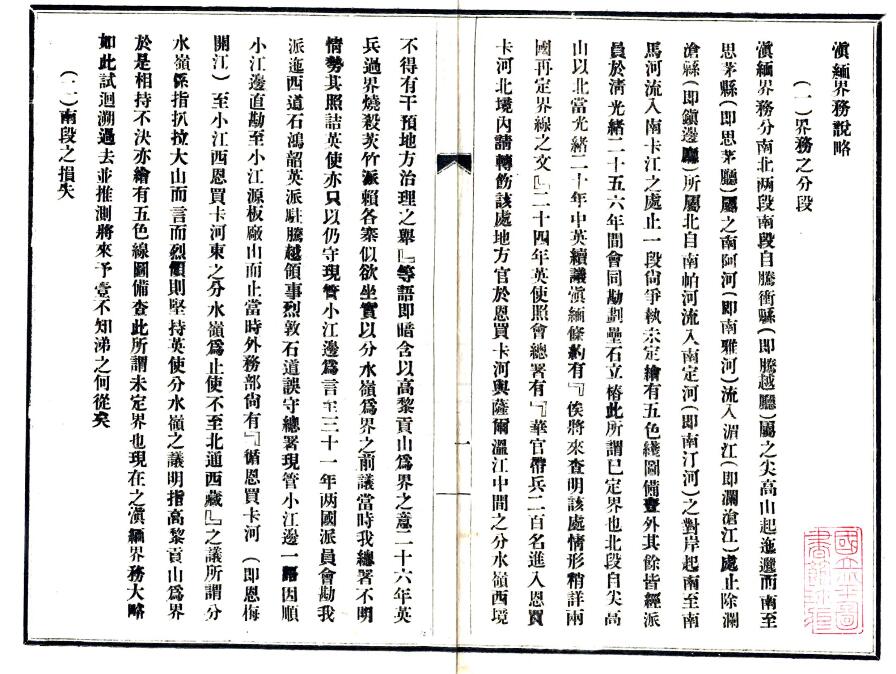 滇緬界務說略
（一）界務之分段
滇緬界務分南北兩段南段自騰衝縣（即騰越廳）屬之尖高山起迤邐而南至
思茅縣（即思茅廳）屬之南阿河（即南雅河）流入湄江（即瀾滄江）處止除瀾
滄縣（即鎮邊廳）所屬北自南帕河流入南定河（即南汀河）之對岸起南至南
馬河流入南卡江之處止一段尚爭執未定繪有五色綫圖備查外其餘皆經派
員於淸光緒二十五六年間會同勘劃壘石立樁此所謂已定界也北段自尖高
山以北當光緒二十年中英續議滇緬條約有『俟將來查明該處情形稍詳兩
國再定界線之文』二十四年英使照會總署有『華官帶兵二百名進入恩買
卡河北境內請轉飭該處地方官於恩買卡河與薩爾溫江中間之分水嶺西境
不得有干預地方治理之舉』等語即暗含以高黎貢山爲界之意二十六年英
兵過界燒殺茨竹派賴各寨似欲坐實以分水嶺爲界之前議當時我總署不明
情勢其照詰英使亦只以仍守現管小江邊爲言至三十一年两國派員會勘我
派迤西道石鴻韶英派駐騰越領事烈敦石道誤守總署現管小江邊一語因順
小江邊直勘至小江源板廠山而止當時外務部尙有『循恩買卡河（即恩梅
開江）至小江西恩買卡河東之分水嶺爲止使不至北通西藏』之議所謂分
水嶺係指扒拉大山而言而烈領則堅持英使分水嶺之議明指高黎貢山爲界
於是相持不決亦繪有五色線圖備查此所謂未定界也現在之滇緬界務大略
如此試迴溯過去並推測將來予壹不知涕之何從矣
（二）南段之損失
一